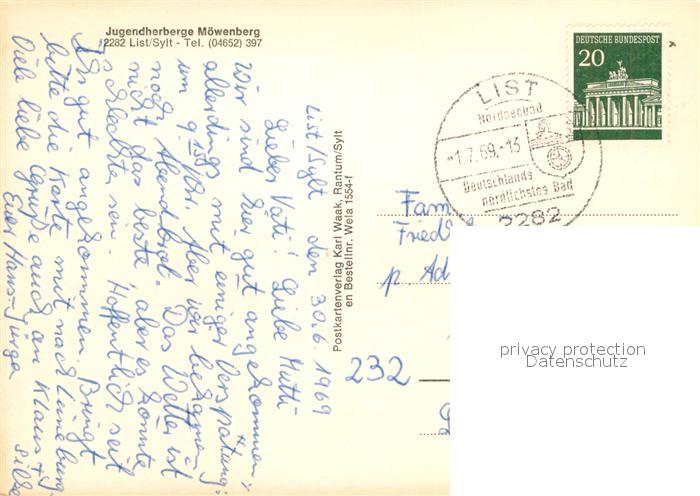 Jugendherberge Möwenberg
2282 List/Sylt - Tel. (04652) 397
List/Sylt den 30.6.1969
Lieber Vati! Liebe Mutti
Wir sind hier gut angekommen,
allerdings mit einiger Verspätung:
um 9.15 Uhr. Aber wir bekamen
noch Abendbrot. Das Wetter ist
nicht das beste, aber es könnte
schlechter sein. Hoffentlich seid
Ihr gut angekommen. Bringt
bitte die Karte mit nach Lüneburg.
Viele liebe Grüße auch an Klaus +
Silke
Euer Hans-Jürgen
Postkartenverlag Karl Waak, Rantum/Sylt
en Bestellnr. Wela 1554-f
DEUTSCHE BUNDESPOST
20
LIST
Nordseebad
-1.7.69.-13
Deutschlands
nördlichstes Bad
2282
Fam
Fried
p Ad
232
privacy protection
Datenschutz